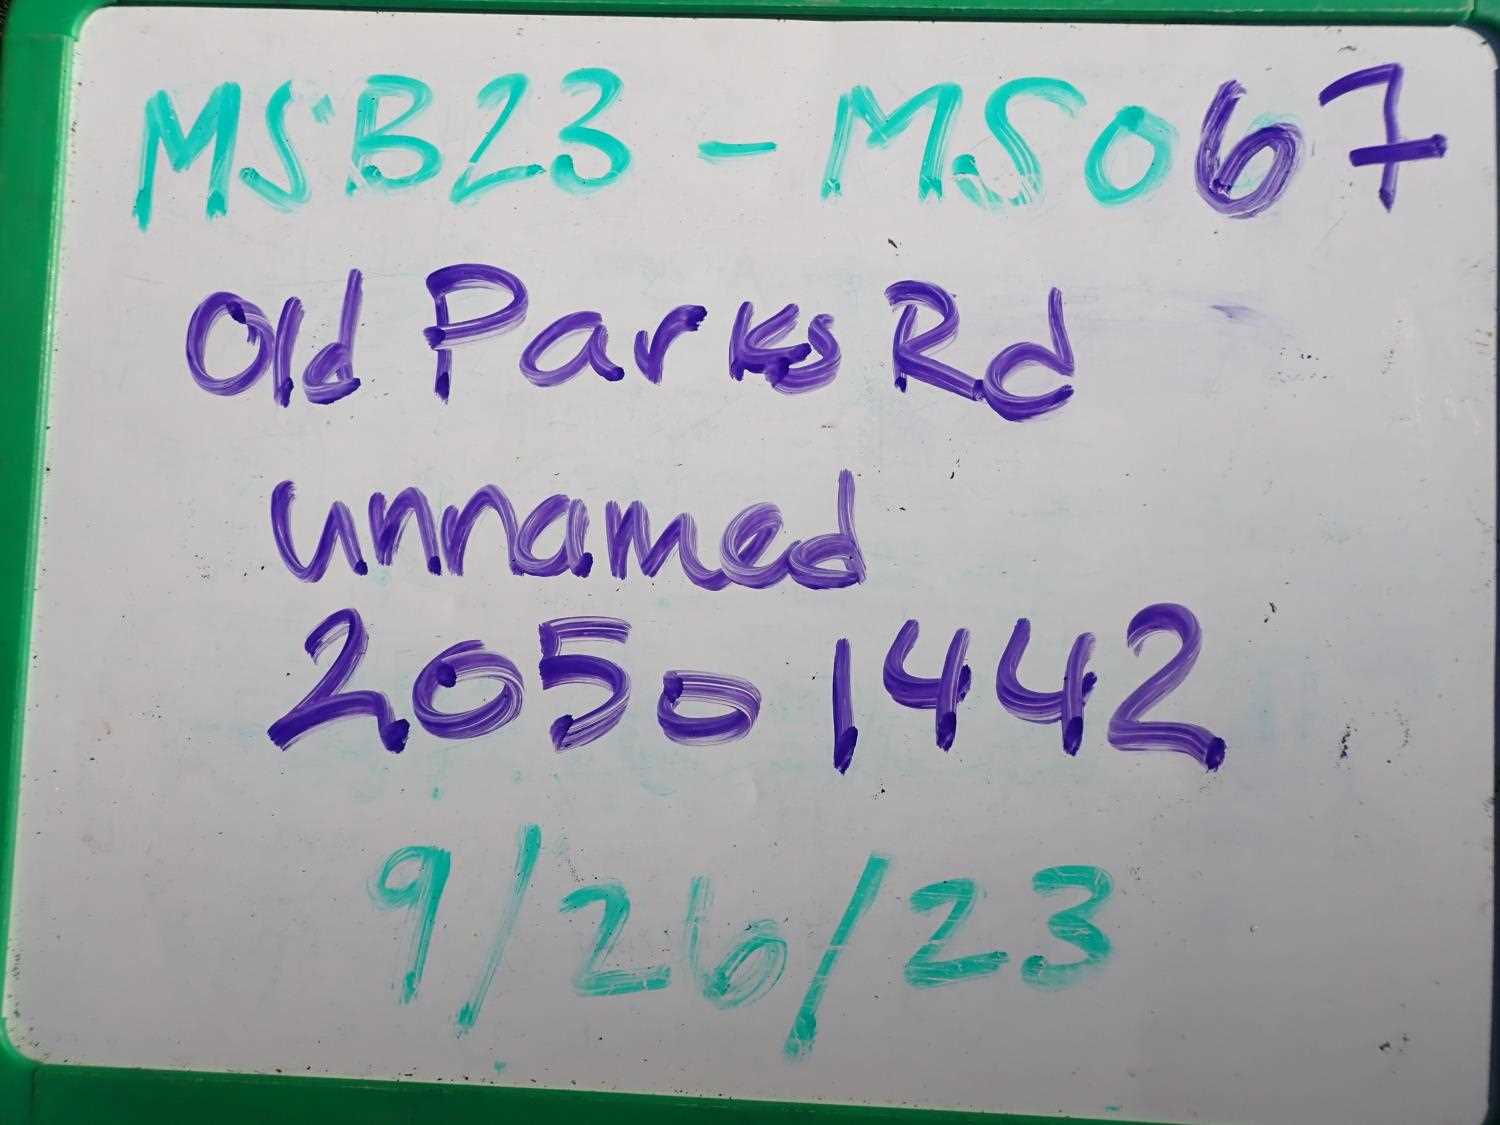 MSB23 - MS067
Old Parks Rd
unnamed
20501442
9/26/23